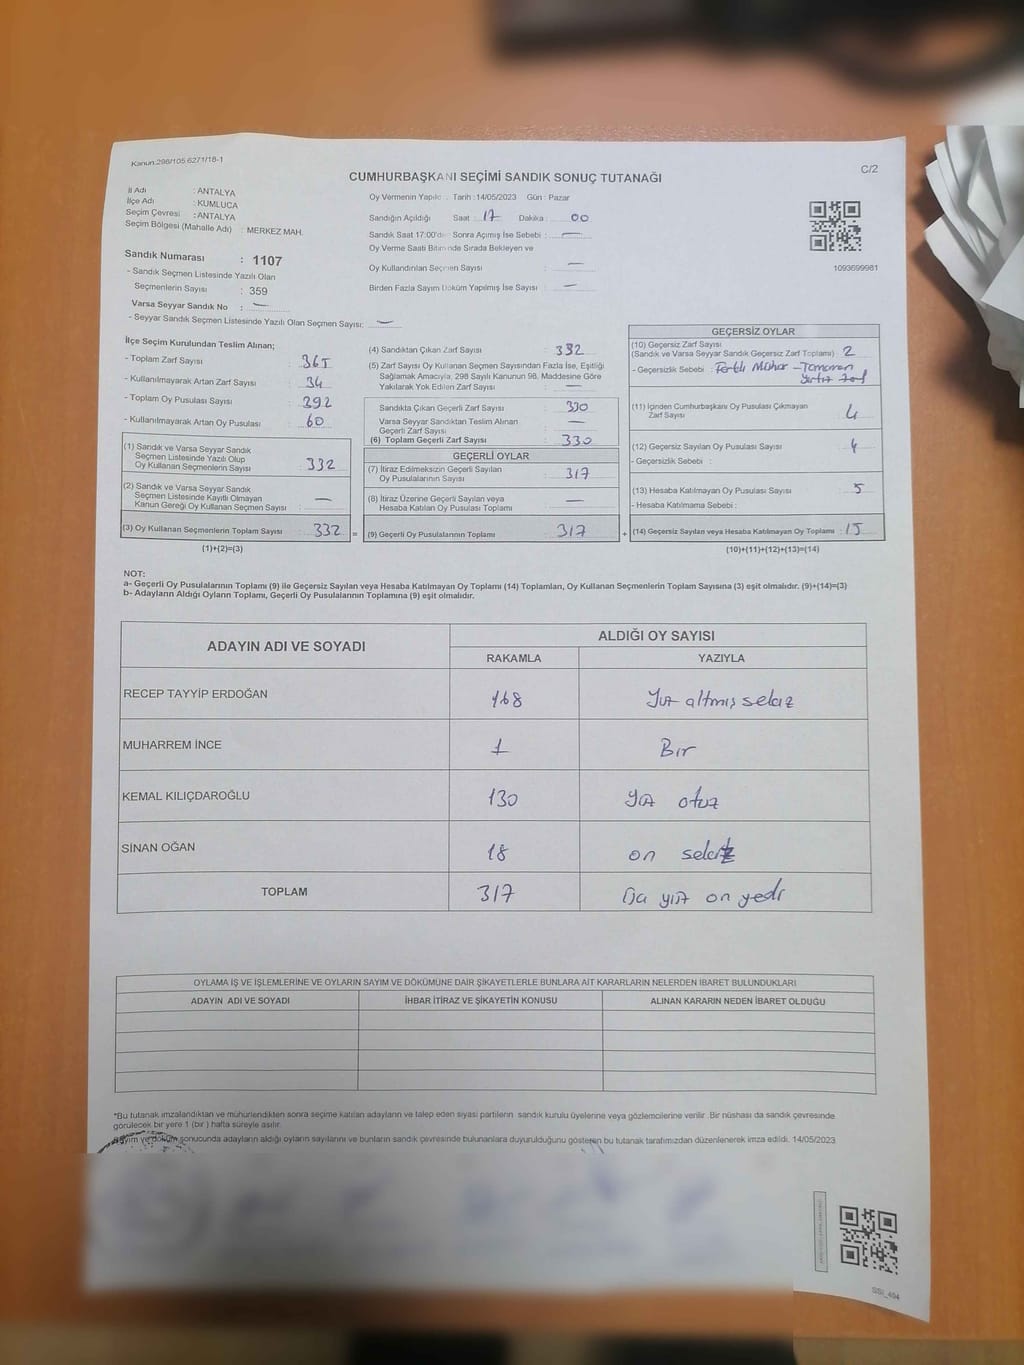 Kanun:298/105 6271/18-1
C/2
CUMHURBAŞKANI SEÇİMİ SANDIK SONUÇ TUTANAĞI
İl Adı : ANTALYA
İlçe Adı : KUMLUCA
Seçim Çevresi : ANTALYA
Seçim Bölgesi (Mahalle Adı) : MERKEZ MAH.
Sandık Numarası : 1107
- Sandık Seçmen Listesinde Yazılı Olan
Seçmenlerin Sayısı : 359
Varsa Seyyar Sandık No : —
- Seyyar Sandık Seçmen Listesinde Yazılı Olan Seçmen Sayısı: —
Oy Vermenin Yapıldı Tarih : 14/05/2023 Gün : Pazar
Sandığın Açıldığı Saat : 17 Dakika : 00
Sandık Saat 17:00'd Sonra Açımış İse Sebebi : —
Oy Verme Saati Bitiminde Sırada Bekleyen ve
Oy Kullandırılan Seçmen Sayısı : —
Birden Fazla Sayım Döküm Yapılmış İse Sayısı : —
1093699981
İlçe Seçim Kurulundan Teslim Alınan;
- Toplam Zarf Sayısı : 365
- Kullanılmayarak Artan Zarf Sayısı : 34
- Toplam Oy Pusulası Sayısı : 392
- Kullanılmayarak Artan Oy Pusulası : 60
(1) Sandık ve Varsa Seyyar Sandık
Seçmen Listesinde Yazılı Olup
Oy Kullanan Seçmenlerin Sayısı : 332
(2) Sandık ve Varsa Seyyar Sandık
Seçmen Listesinde Kayıtlı Olmayan
Kanun Gereği Oy Kullanan Seçmen Sayısı : —
(3) Oy Kullanan Seçmenlerin Toplam Sayısı : 332
(1)+(2)=(3)
(4) Sandıktan Çıkan Zarf Sayısı : 332
(5) Zarf Sayısı Oy Kullanan Seçmen Sayısından Fazla İse, Eşitliği
Sağlamak Amacıyla, 298 Sayılı Kanunun 98. Maddesine Göre
Yakılarak Yok Edilen Zarf Sayısı : —
Sandıkta Çıkan Geçerli Zarf Sayısı : 330
Varsa Seyyar Sandıktan Teslim Alınan
Geçerli Zarf Sayısı : —
(6) Toplam Geçerli Zarf Sayısı : 330
GEÇERLİ OYLAR
(7) İtiraz Edilmeksizin Geçerli Sayılan
Oy Pusulalarının Sayısı : 317
(8) İtiraz Üzerine Geçerli Sayılan veya
Hesaba Katılan Oy Pusulası Toplamı : —
= (9) Geçerli Oy Pusulalarının Toplamı : 317 +
GEÇERSİZ OYLAR
(10) Geçersiz Zarf Sayısı
(Sandık ve Varsa Seyyar Sandık Geçersiz Zarf Toplamı) : 2
- Geçersizlik Sebebi : Farklı Mühür - Tamamen
yırtık zarf
(11) İçinden Cumhurbaşkanı Oy Pusulası Çıkmayan
Zarf Sayısı : 4
(12) Geçersiz Sayılan Oy Pusulası Sayısı : 4
- Geçersizlik Sebebi :
(13) Hesaba Katılmayan Oy Pusulası Sayısı : 5
- Hesaba Katılmama Sebebi :
(14) Geçersiz Sayılan veya Hesaba Katılmayan Oy Toplamı : 15
(10)+(11)+(12)+(13)=(14)
NOT:
a- Geçerli Oy Pusulalarının Toplamı (9) ile Geçersiz Sayılan veya Hesaba Katılmayan Oy Toplamı (14) Toplamları, Oy Kullanan Seçmenlerin Toplam Sayısına (3) eşit olmalıdır. (9)+(14)=(3)
b- Adayların Aldığı Oyların Toplamı, Geçerli Oy Pusulalarının Toplamına (9) eşit olmalıdır.
ADAYIN ADI VE SOYADI
ALDIĞI OY SAYISI
RAKAMLA YAZIYLA
RECEP TAYYİP ERDOĞAN 168 Yüz altmış sekiz
MUHARREM İNCE 1 Bir
KEMAL KILIÇDAROĞLU 130 Yüz otuz
SİNAN OĞAN 18 on sekiz
TOPLAM 317 Üç yüz on yedi
OYLAMA İŞ VE İŞLEMLERİNE VE OYLARIN SAYIM VE DÖKÜMÜNE DAİR ŞİKAYETLERLE BUNLARA AİT KARARLARIN NELERDEN İBARET BULUNDUKLARI
ADAYIN ADI VE SOYADI İHBAR İTİRAZ VE ŞİKAYETİN KONUSU ALINAN KARARIN NEDEN İBARET OLDUĞU
*Bu tutanak imzalandıktan ve mühürlendikten sonra seçime katılan adayların ve talep eden siyasi partilerin sandık kurulu üyelerine veya gözlemcilerine verilir. Bir nüshası da sandık çevresinde
görülecek bir yere 1 (bir) hafta süreyle asılır.
Sayım ve döküm sonucunda adayların aldığı oyların sayılarını ve bunların sandık çevresinde bulunanlara duyurulduğunu gösteren bu tutanak tarafımızdan düzenlenerek imza edildi. 14/05/2023
SSI_494